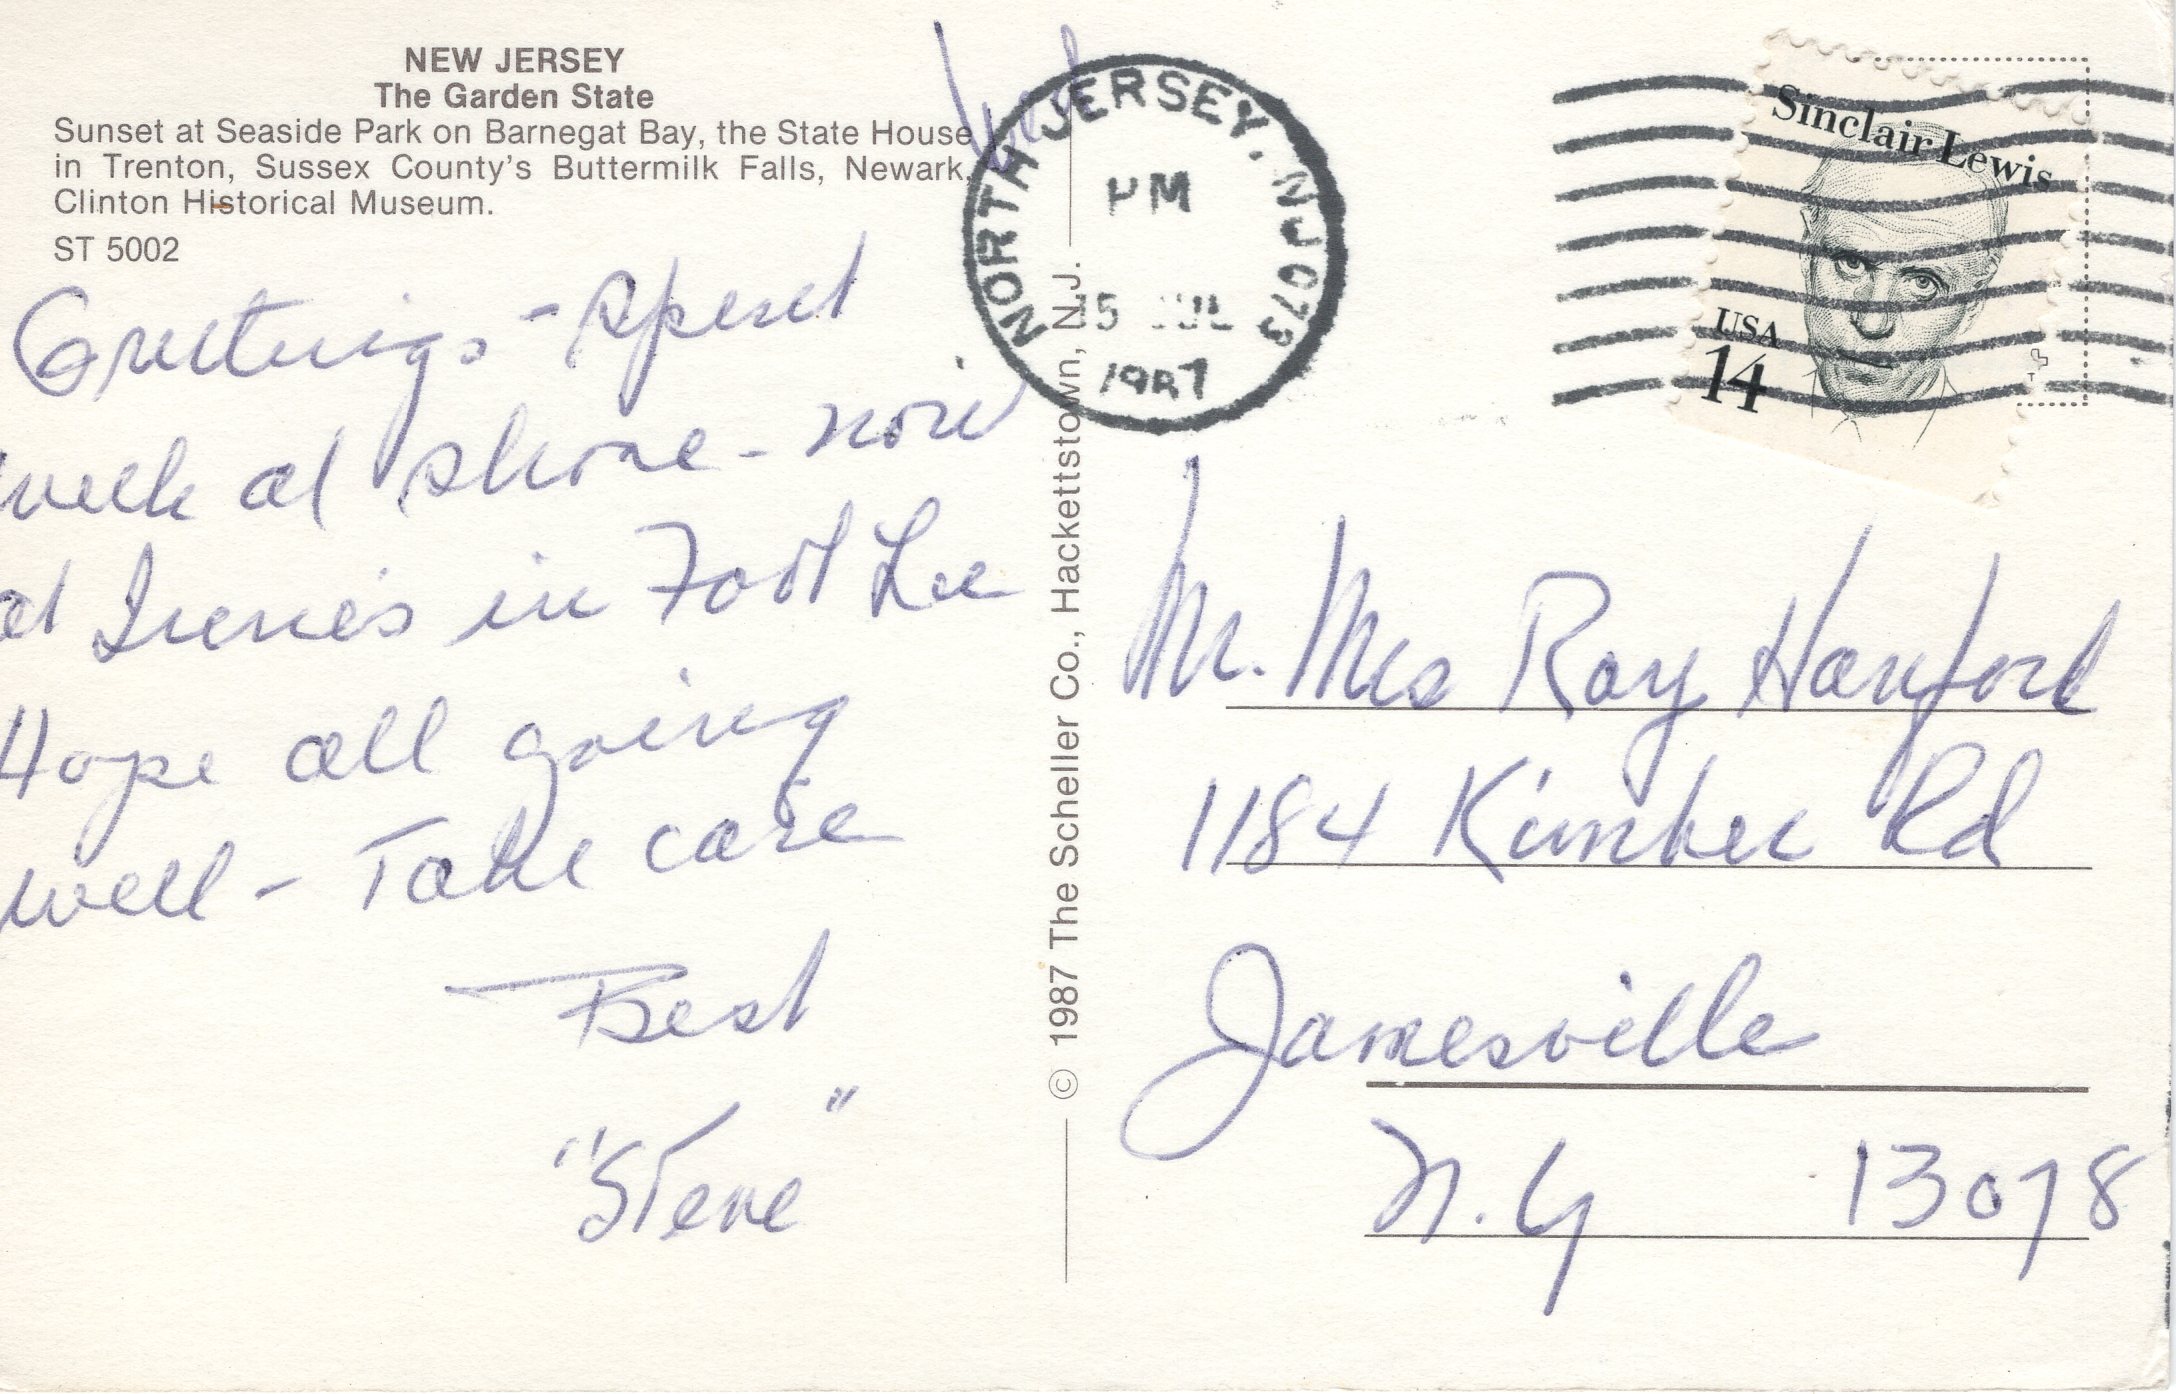 NEW JERSEY
The Garden State
Sunset at Seaside Park on Barnegat Bay, the State House
in Trenton, Sussex County's Buttermilk Falls, Newark,
Clinton Historical Museum.
ST 5002
Greetings - spent
week at shore - now
at Irene's in Fort Lee
Hope all going
well - Take care
Best
"Steve"
© 1987 The Scheller Co., Hackettstown, N.J.
NORTH JERSEY, NJ 073
PM
15 JUL
1987
Sinclair Lewis
USA
14
Mr. Mrs Ray Hanford
1184 Kimber Rd
Jamesville
N.Y 13078